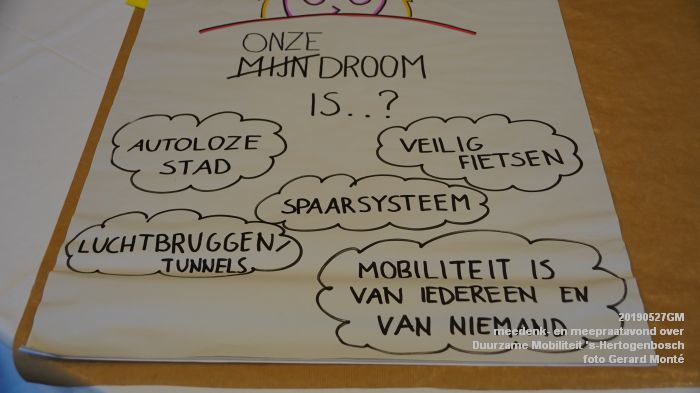 ONZE
MIJN DROOM
IS..?
AUTOLOZE
STAD
VEILIG
FIETSEN
SPAARSYSTEEM
LUCHTBRUGGEN/
TUNNELS
MOBILITEIT IS
VAN IEDEREEN EN
VAN NIEMAND
20190527GM
meedenk- en meepraatavond over
Duurzame Mobiliteit 's-Hertogenbosch
foto Gerard Monté